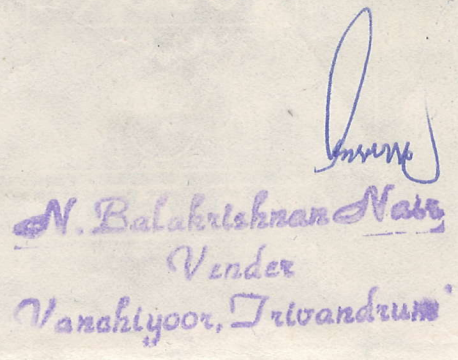 N. Balakrishnan Nair,
Vender
Vanchiyoor, Trivandrum